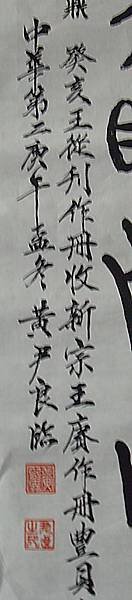 鼎 癸亥王從刊作冊收新宗王賡作冊豐貝
中華第二庚午孟冬 黃尹良臨